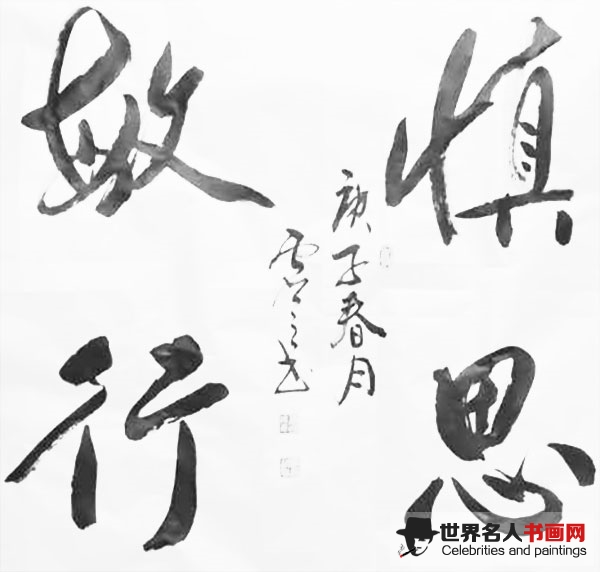 慎思
敏行
庚子春月
世界名人书画网
Celebrities and paintings